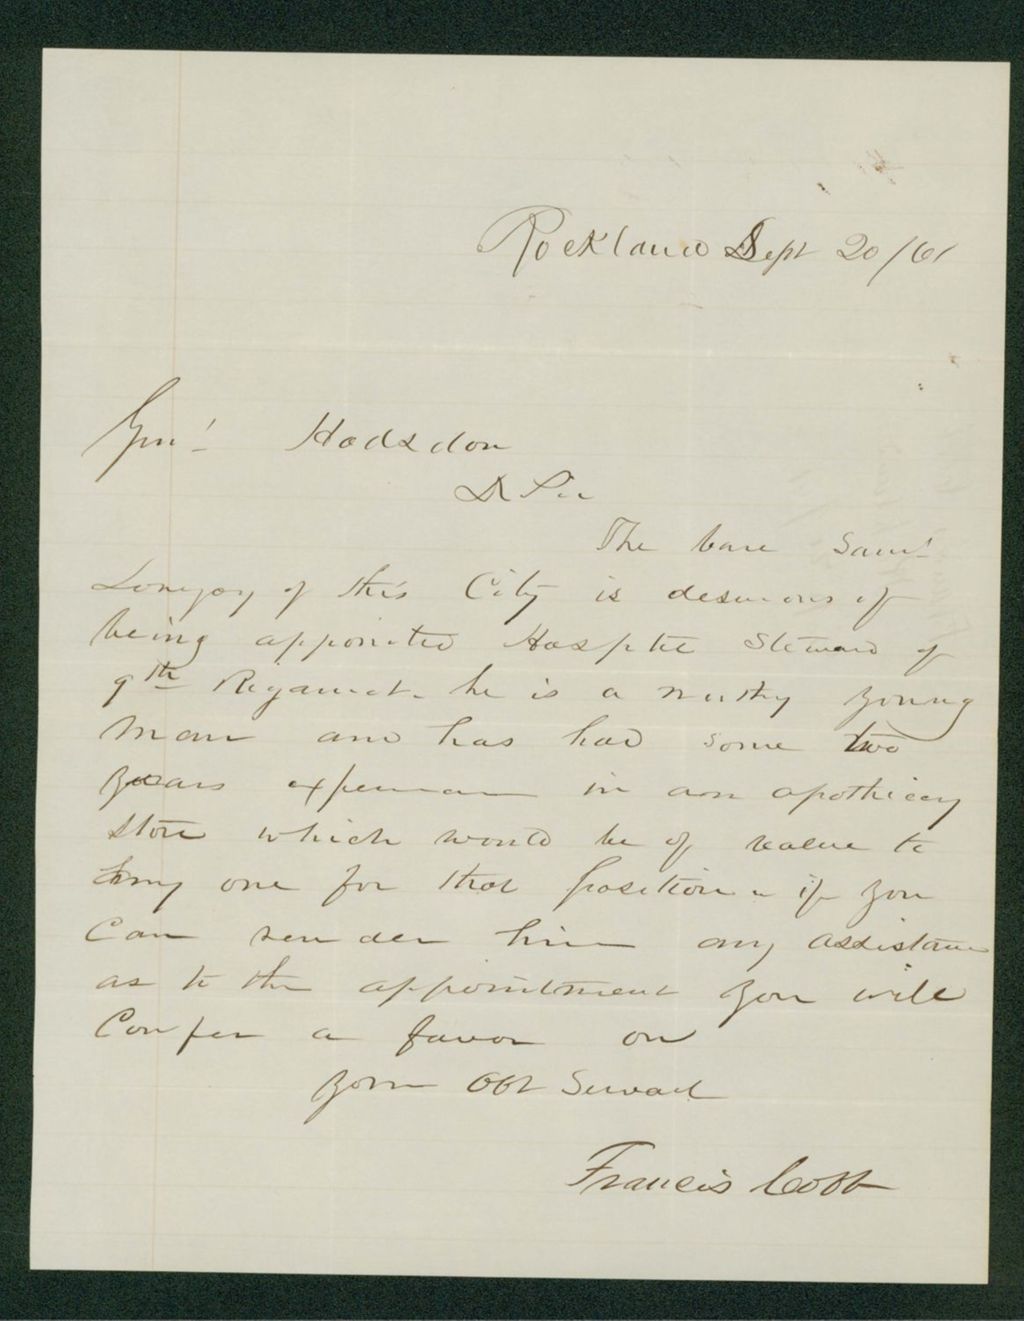 Rockland Sept 20/61
Genl Hodsdon
D Sir
The bare Saml
Lovejoy of this City is desireous of
being appointed Hospitel Steward of
9th Regament. he is a trusty young
man and has had some two
years experiance in aon apothicary
store which would be of value to
any one for that position - if you
can render him any assistance
as to the appointment you will
Confer a favor on
Your Obt Servant
Francis Cobb